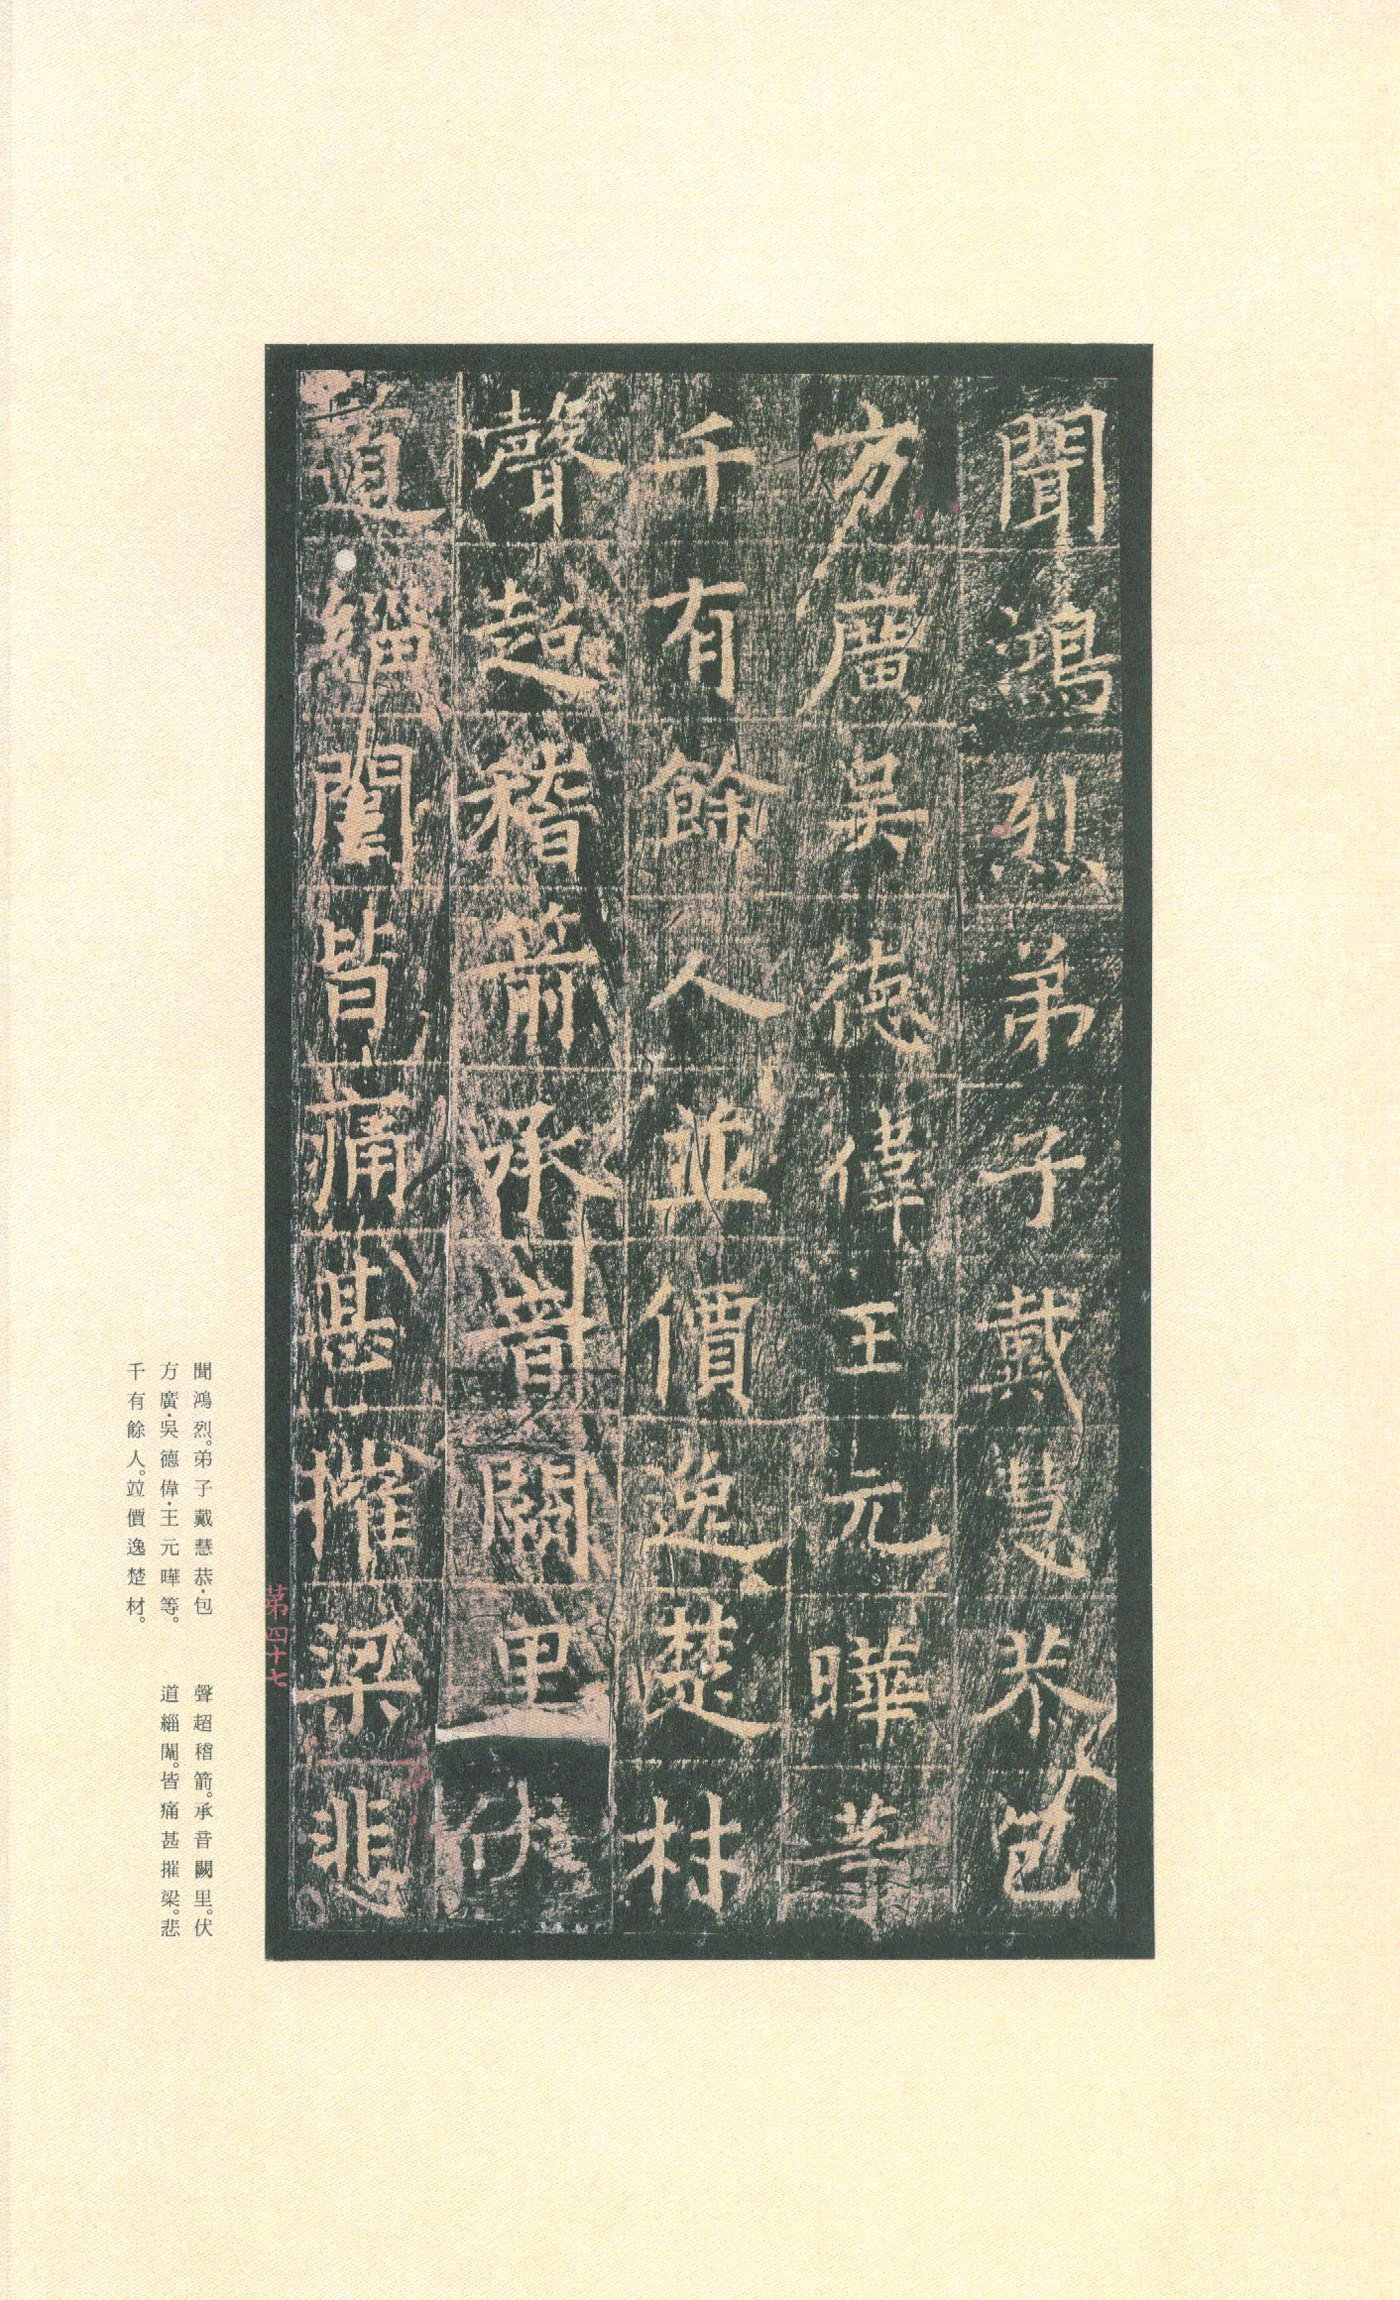 聞鴻烈弟子戴慧恭包
方廣吳德偉王元曄等
千有餘人並價逸楚材
聲超稽箭承音闕里伏
道緇闈皆痛甚摧梁悲
第四十七
聞鴻烈。弟子戴慧恭·包
方廣·吳德偉·王元曄等。
千有餘人。竝價逸楚材。
聲超稽箭。承音闕里。伏
道緇闈。皆痛甚摧梁。悲